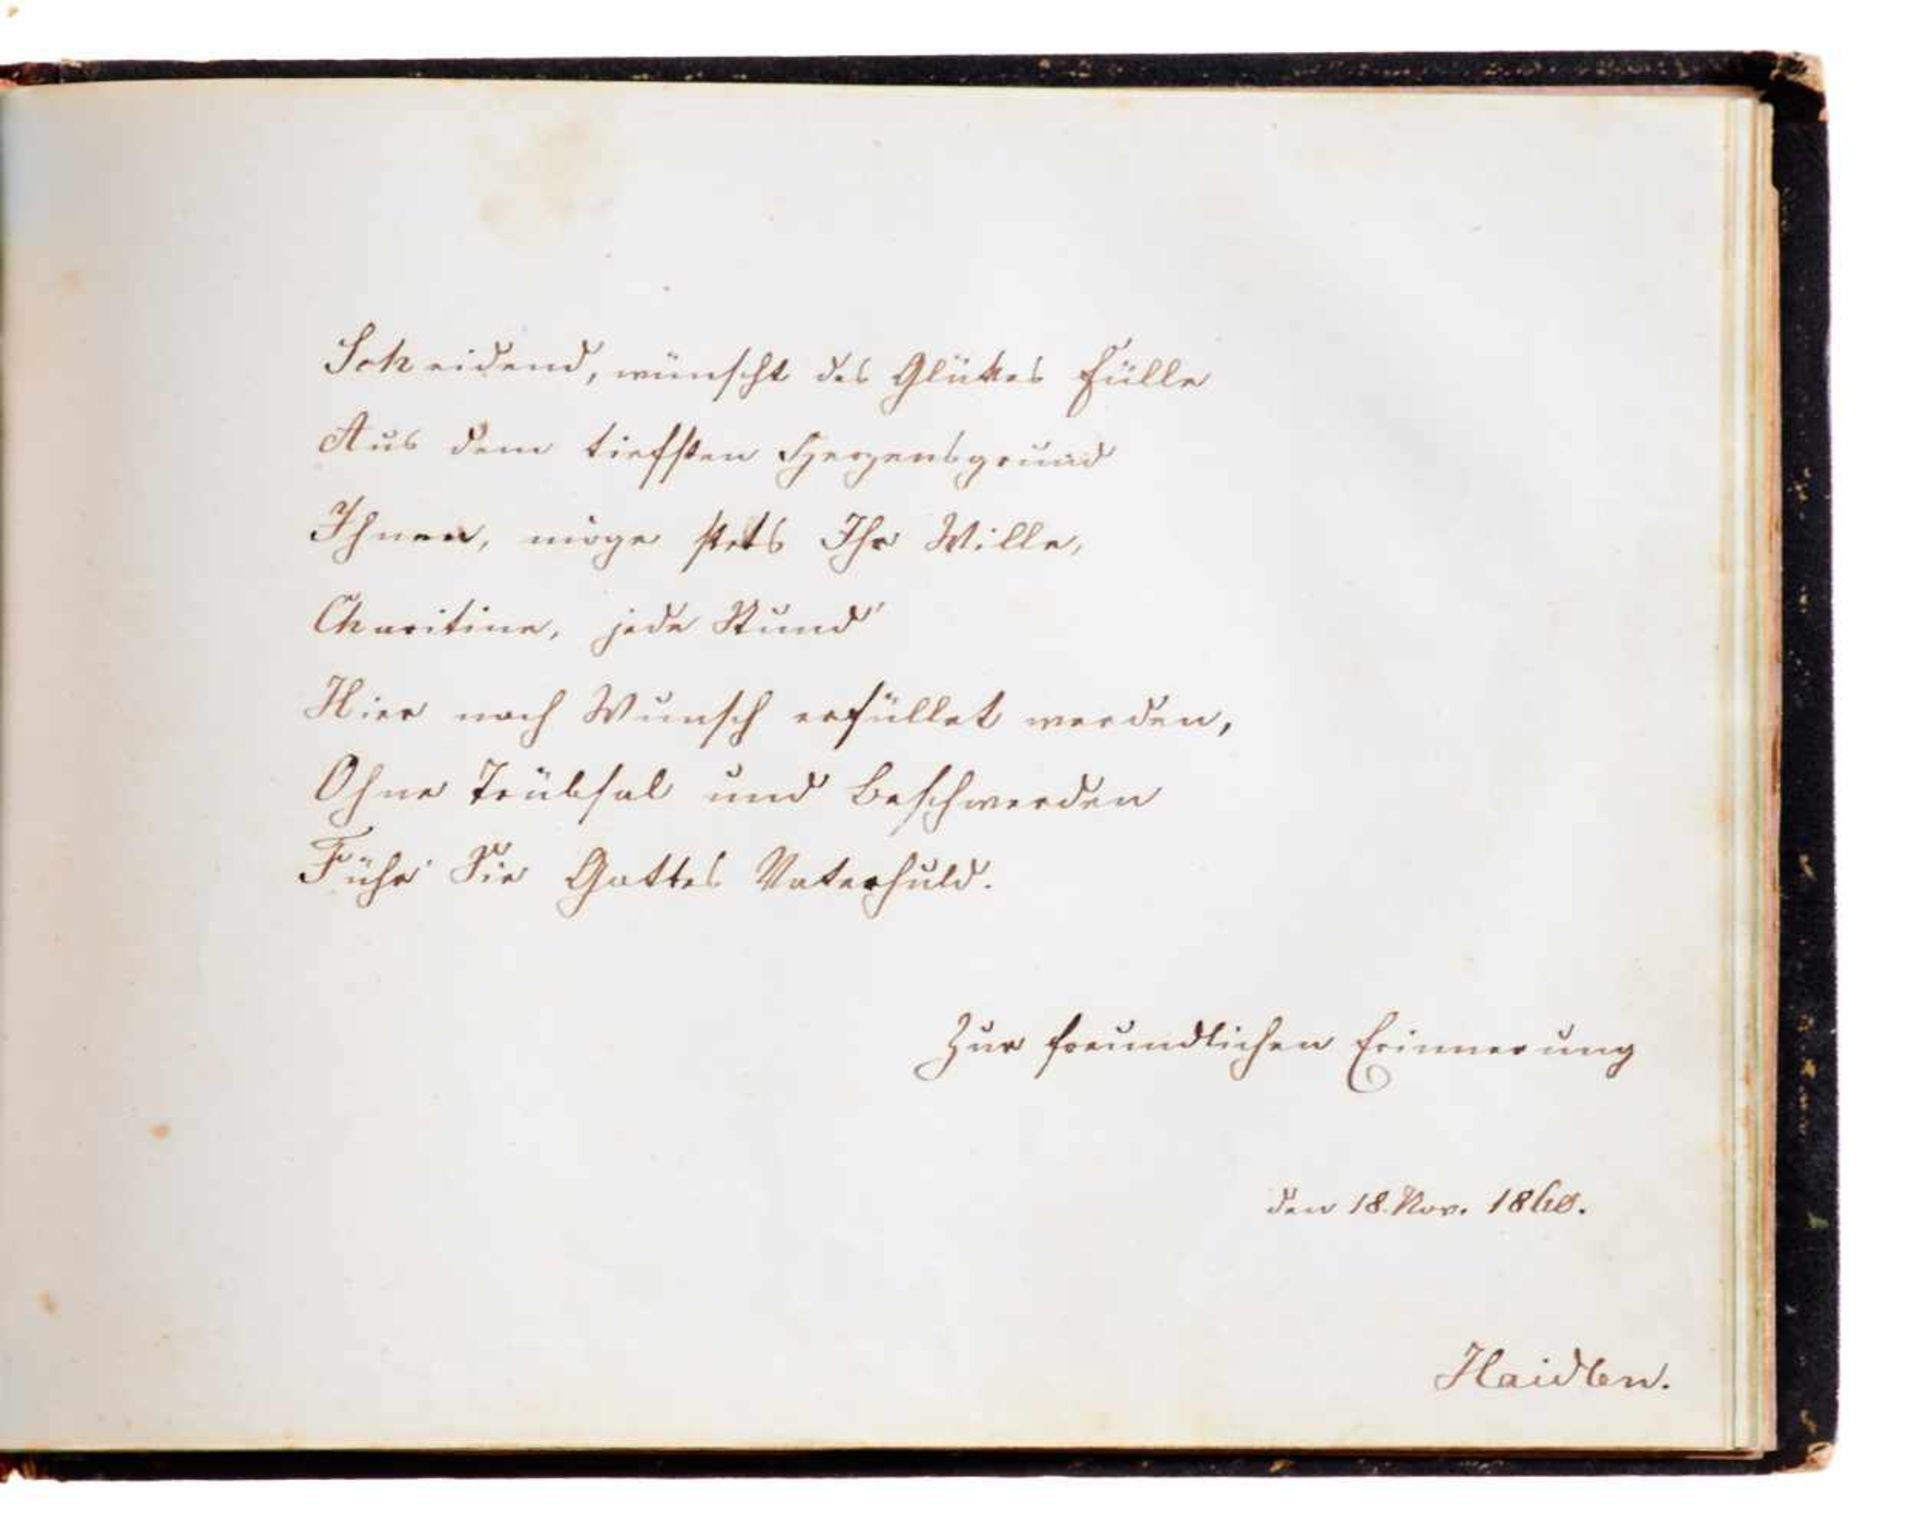 Scheidend, wünscht des Glükes Fülle
Aus dem tiefsten Herzensgrund
Ihnen, möge stets Ihr Wille,
Charitine, jede Stund'
Hier nach Wunsch erfüllet werden,
Ohne Trübsal und Beschwerden
Führ' Sie Gottes Vaterhuld.
Zur freundlichen Erinnerung
den 18. Nov. 1860.